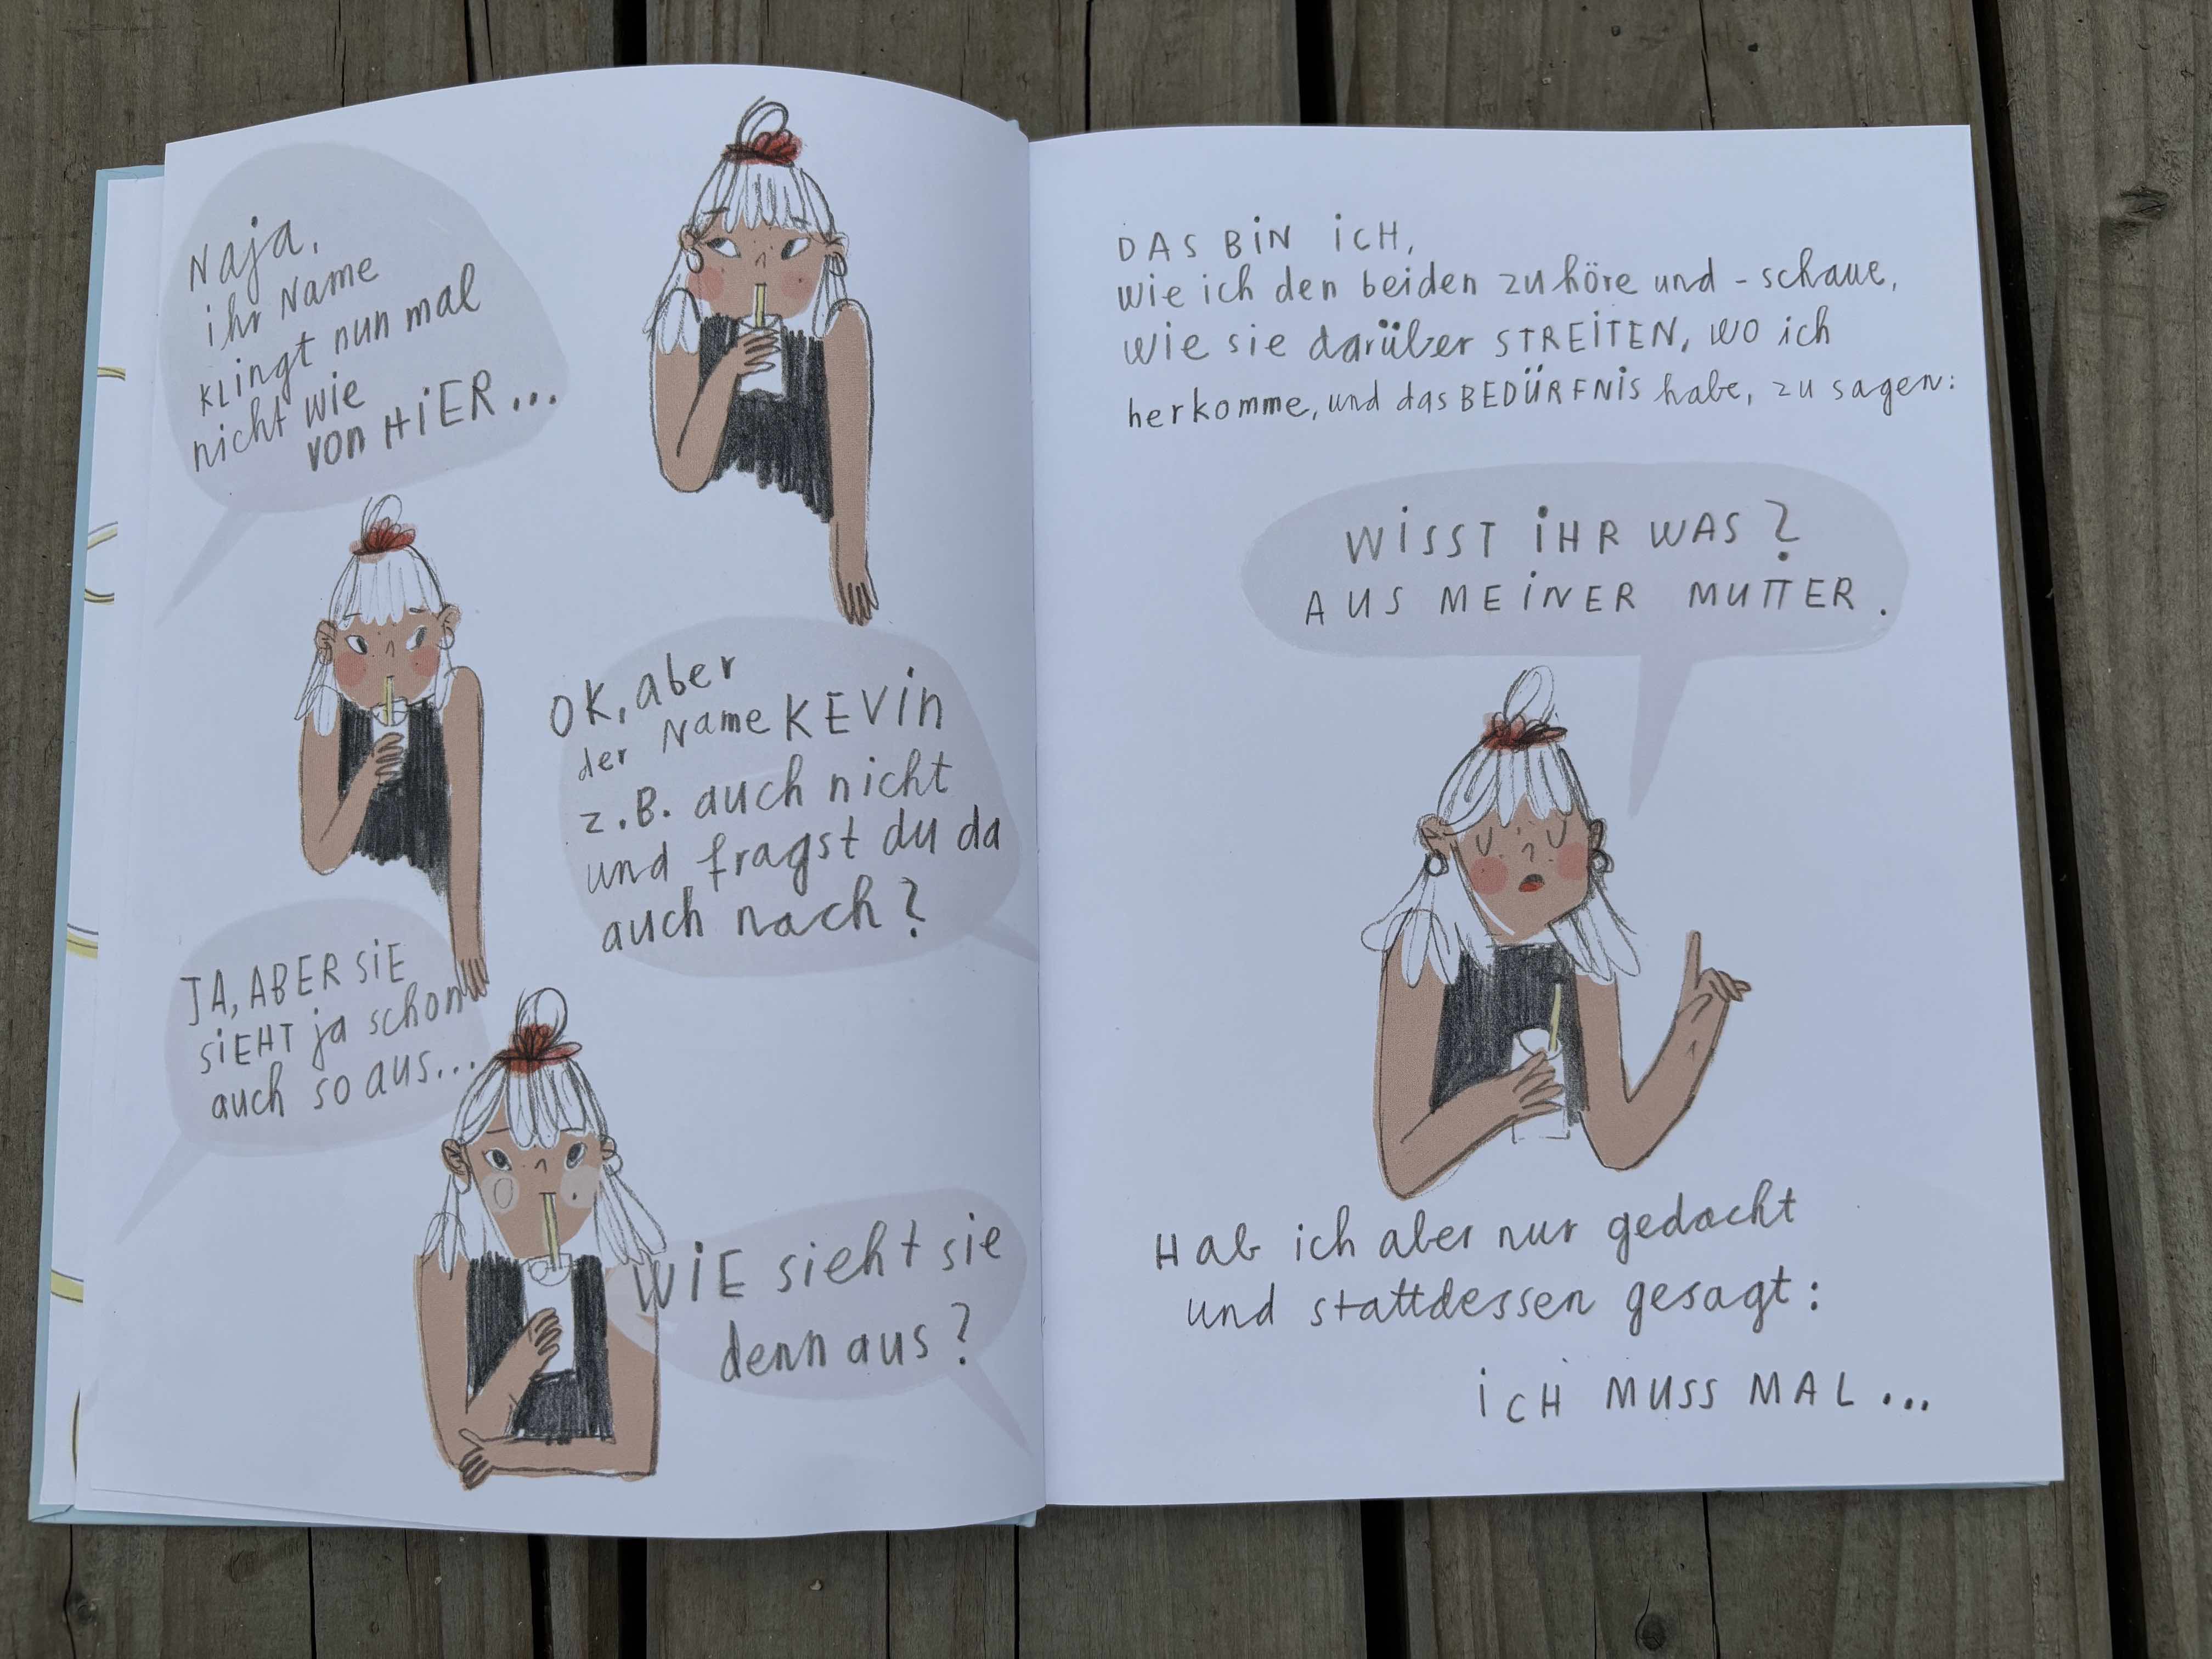 Naja,
ihr Name
klingt nun mal
nicht wie
von HiER...
OK, aber
der Name KEVin
z.B. auch nicht
und fragst du da
auch nach?
JA, ABER SiE
SiEHT ja schon
auch so aus...
WiE sieht sie
denn aus?
DAS BiN iCH,
wie ich den beiden zuhöre und -schaue,
wie sie darüber STREiTEN, wo ich
herkomme, und das BEDÜRFNiS habe, zu sagen:
WiSST iHR WAS?
AUS MEiNER MUTTER.
Hab ich aber nur gedacht
und stattdessen gesagt:
iCH MUSS MAL...